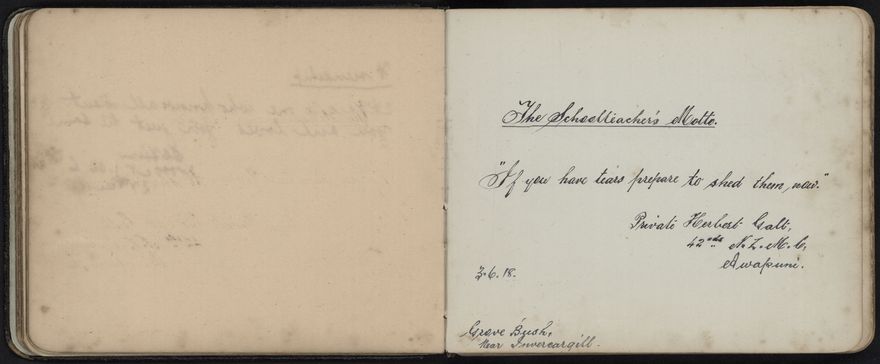 The Schoolteacher's Motto.
"If you have tears prepare to shed them, now."
Private Herbert Galt,
42nds N.Z.M.C,
Awapuni.
3.6.18.
Grove Bush,
Near Invercargill.